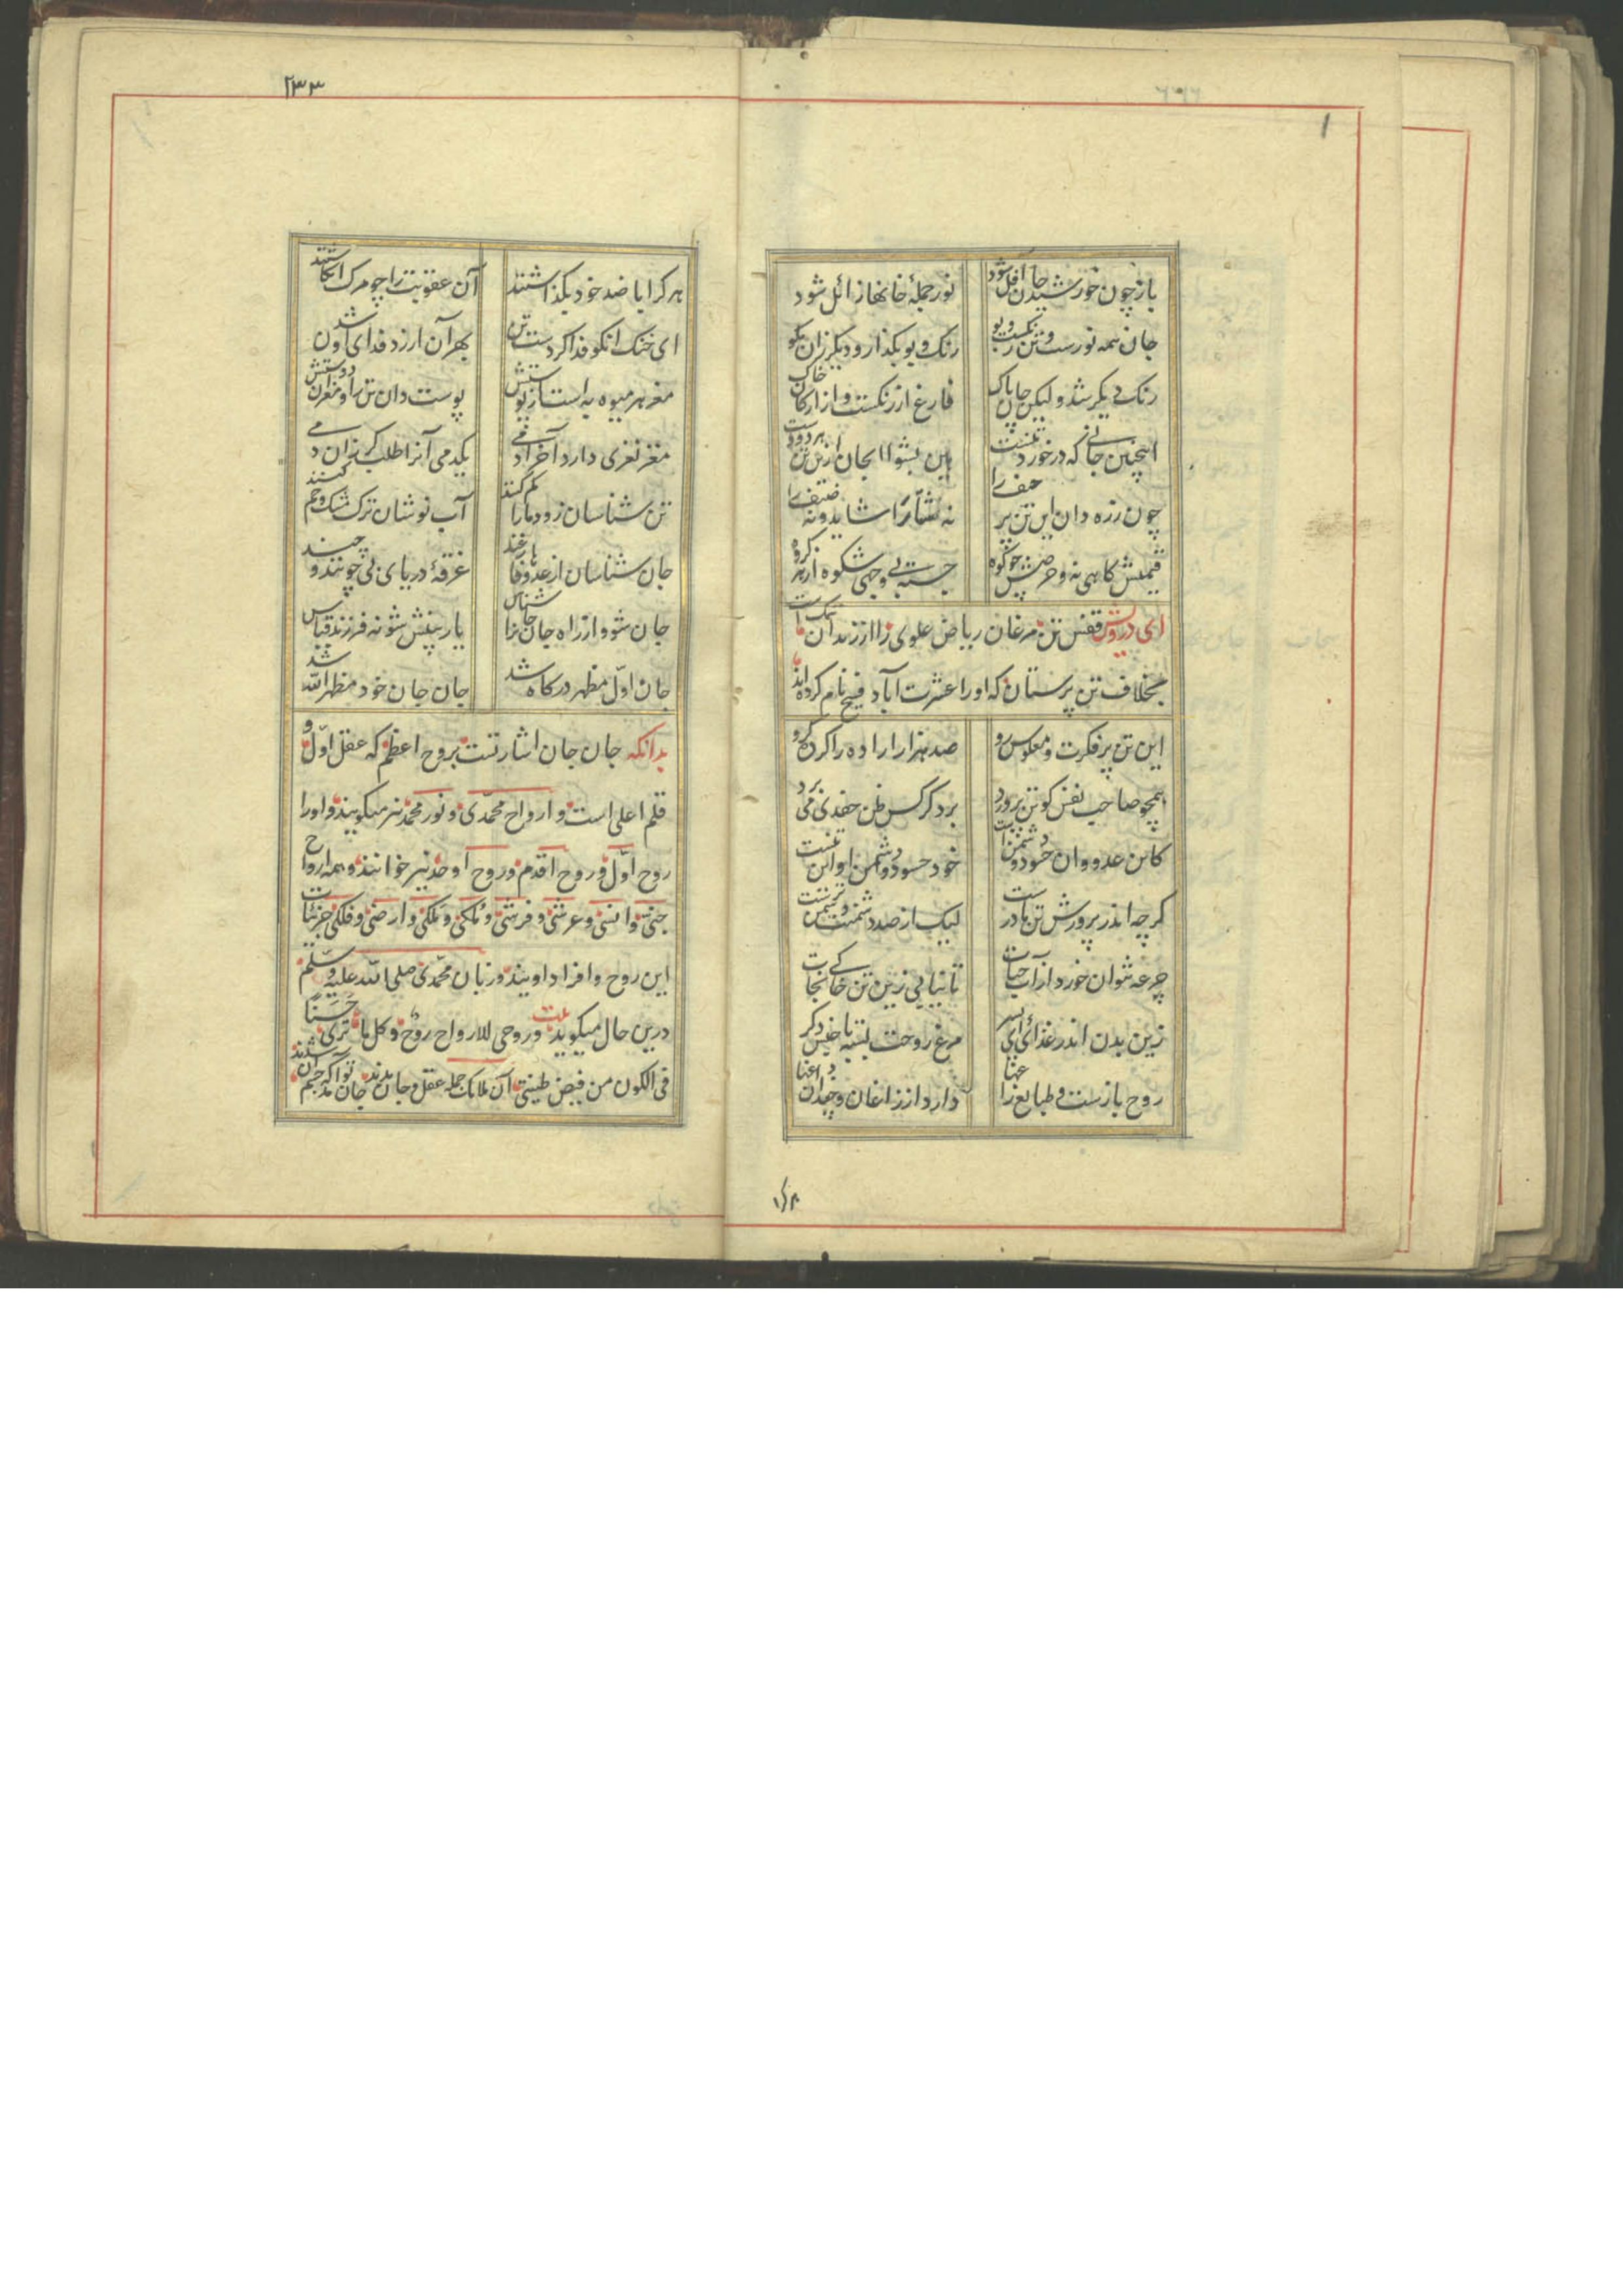 باز چون خورشید جان آفل شود
نور جمله خانها زائل شود
جان همه نورست و تن رنگست و بو
رنگ و بو بگذار و دیگر زان مگو
رنگ دیگر شد ولیکن جان پاک
فارغ از رنگست و از ارکان خاک
اینچنین جانی که در خورد تنست
هین بشو ای جان ازین تن هر دو دست
چون زره دان این تن پر حیف را
نه شتا را شاید و نه صیف را
قیمتش کاهی نه و حرصش چو کوه
جسته بی وجهی شکوه از هر گروه
ای درویش قفس تن مرغان ریاض علوی را از زندانست
بخلاف تن پرستان که او را عشرت آباد فسیح نام کرده اند
این تن پر فکرت و معکوس رو
صد هزار آزاده را کرده گرو
همچو صاحب نفس کو تن پرورد
بر دگر کس ظن حقدی می برد
کاین عدو وان حسود و دشمنست
خود حسود و دشمن او این تنست
گرچه اندر پرورش تن مادرست
لیک از صد دشمنت دشمن ترست
جرعه نتوان خورد از آب حیات
تا نیابی زین تن خاکی نجات
زین بدن اندر غذائی ای پسر
مرغ روحت بسته با جنس دگر
روح بازست و طبایع زاغها
دارد از زاغان و چغدان داغها
۲۳۳
هر کرا با ضد خود بگذاشتند
آن عقوبت را چو مرگ انگاشتند
ای خنک آنکو فدا کردست تن
بهر آن ارزد فدای آن شدن
مغز هر میوه به است از پوستش
پوست دان تن را و مغز آن دوستش
مغز نغزی دارد آخر آدمی
یکدمی آنرا طلب گر زان دمی
تن شناسان زود ما را گم کنند
آب نوشان ترک مشک و خم کنند
جان شناسان از عددها فارغند
غرقه دریای بی چونند و چند
جان شو و از راه جان جان را شناس
یار بینش شو نه فرزند قیاس
جان اول مظهر درگاه شد
جان جان خود مظهر الله شد
بدانکه جان جان اشارتست بروح اعظم که عقل اول و
قلم اعلی است و ارواح محمدی و نور محمد نیز میگویند و اورا
روح اول و روح اقدم و روح اوحد نیز خوانند و همه ارواح
جنی و انسی و عرشی و فرشی و مُلکی و مَلکی و ارضی و فلکی جزئیات
این روح و افراد اویند و زبان محمدی صلی الله علیه و سلم
درین حال میگوید بیت و روحی للارواح روح و کل ما تری حسنا
فی الکون من فیض طینتی آن ملایک جمله عقل و جان بدند جان نو آمد که جسم آن شدند